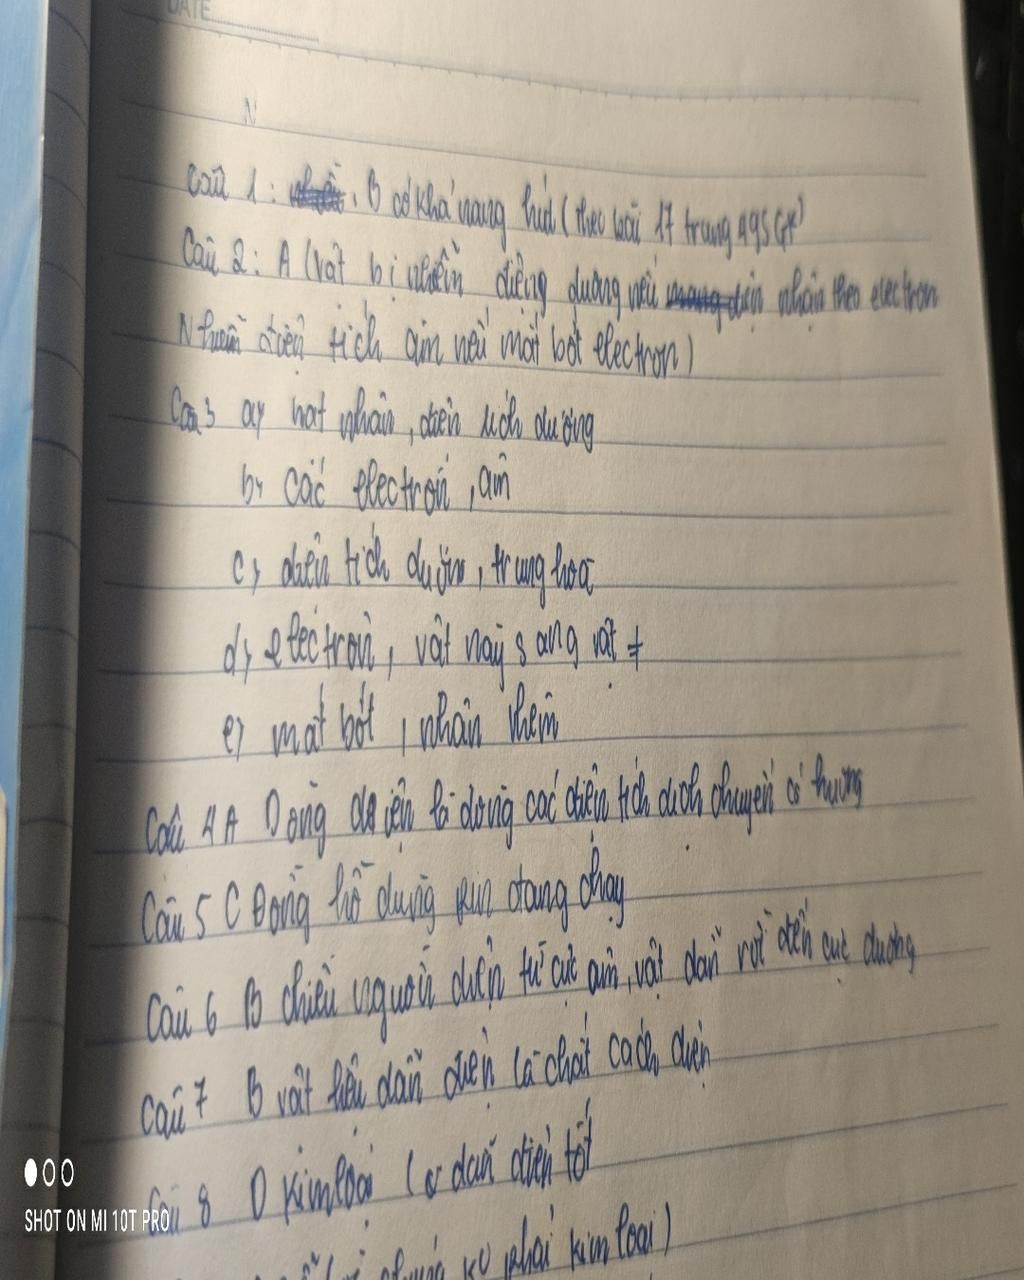 DATE
N
Câu 1: B có khả năng hút (theo bài 17 trang 49 SGK)
Câu 2: A (vật bị nhiễm điện dương nếu nhận theo electron
Nhiễm điện tích âm nếu mất bớt electron)
Câu 3 a, hạt nhân, điện tích dương
b, các electron, âm
c, điện tích dươn, trung hoà
d, electron, vật này sang vật ≠
e, mất bớt, nhận thêm
Câu 4 A Dòng điện là dòng các điện tích dịch chuyển có hướng
Câu 5 C Đồng hồ dùng pin đang chạy
Câu 6 B chiều người điện từ cực âm, vật dẫn rồi đến cực dương
Câu 7 B vật liệu dẫn điện là chất cách điện
Câu 8 D kim loại (có dẫn điện tốt
phải kim loại)
SHOT ON MI 10T PRO